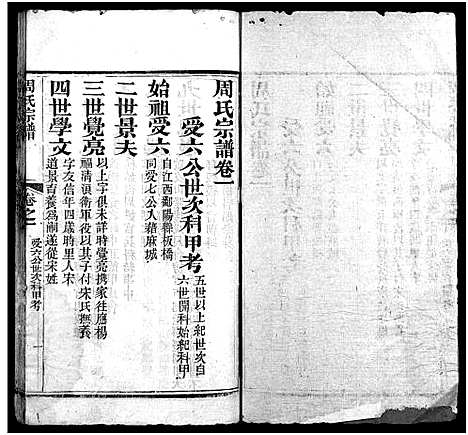 周氏宗譜卷一
受六公世次科甲考 五世以上紀世次自
六世開科始紀科甲
始祖受六 自江西鄱陽縣板橋
同受七公入藉麻城
二世景夫
三世覺亮 以上字俱未詳時覺亮携家往應楊
福清滇衞軍役以其子付宋氏撫養
四世學文 字友信年四歲時里人宋
道景育養為嗣遂從宋姓
周氏宗譜
卷之一
受六公世次科甲考
一